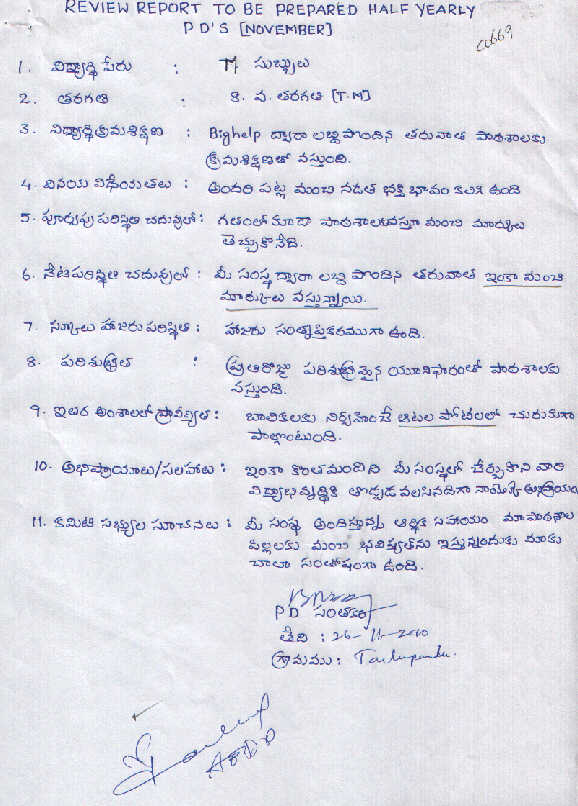 REVIEW REPORT TO BE PREPARED HALF YEARLY
P D'S [NOVEMBER]
1. విద్యార్థి పేరు : M సుబ్బులు
2. తరగతి : 8. వ. తరగతి [T.M]
3. విద్యార్థి క్రమశిక్షణ : Bighelp ద్వారా లబ్ధి పొందిన తరువాత పాఠశాలకు
క్రమశిక్షణతో వస్తుంది.
4. వినయ విధేయతలు : అందరి పట్ల మంచి నడత భక్తి భావం కలిగి ఉంది
5. పూర్వపు పరిస్థితి చదువులో : గతంలో కూడా పాఠశాలకువస్తూ మంచి మార్కులు
తెచ్చుకొనేది.
6. నేటి పరిస్థితి చదువులో : మీ సంస్థ ద్వారా లబ్ధి పొందిన తరువాత ఇంకా మంచి
మార్కులు వస్తున్నాయి.
7. స్కూలు హాజరు పరిస్థితి : హాజరు సంతృప్తికరముగా ఉంది.
8. పరిశుభ్రత : ప్రతిరోజు పరిశుభ్రమైన యూనిఫారంతో పాఠశాలకు
వస్తుంది.
9. ఇతర అంశాలలో ప్రావీణ్యత : బాలికలకు నిర్వహించే ఆటల పోటీలలో చురుకుగా
పాల్గొంటుంది.
10. అభిప్రాయాలు/సలహాలు : ఇంకా కొంతమందిని మీ సంస్థలో చేర్చుకొని వారి
విద్యాభివృద్ధికి తోడ్పడ వలసినదిగా నాయొక్క అభిప్రాయం
11. కమిటి సభ్యుల సూచనలు : మీ సంస్థ అందిస్తున్న ఆర్థిక సహాయం మా పాఠశాల
పిల్లలకు మంచి భవిష్యత్‌ను ఇస్తున్నందుకు మాకు
చాలా సంతోషంగా ఉంది.
P D సంతకం
తేది : 26-11-2010
గ్రామము :